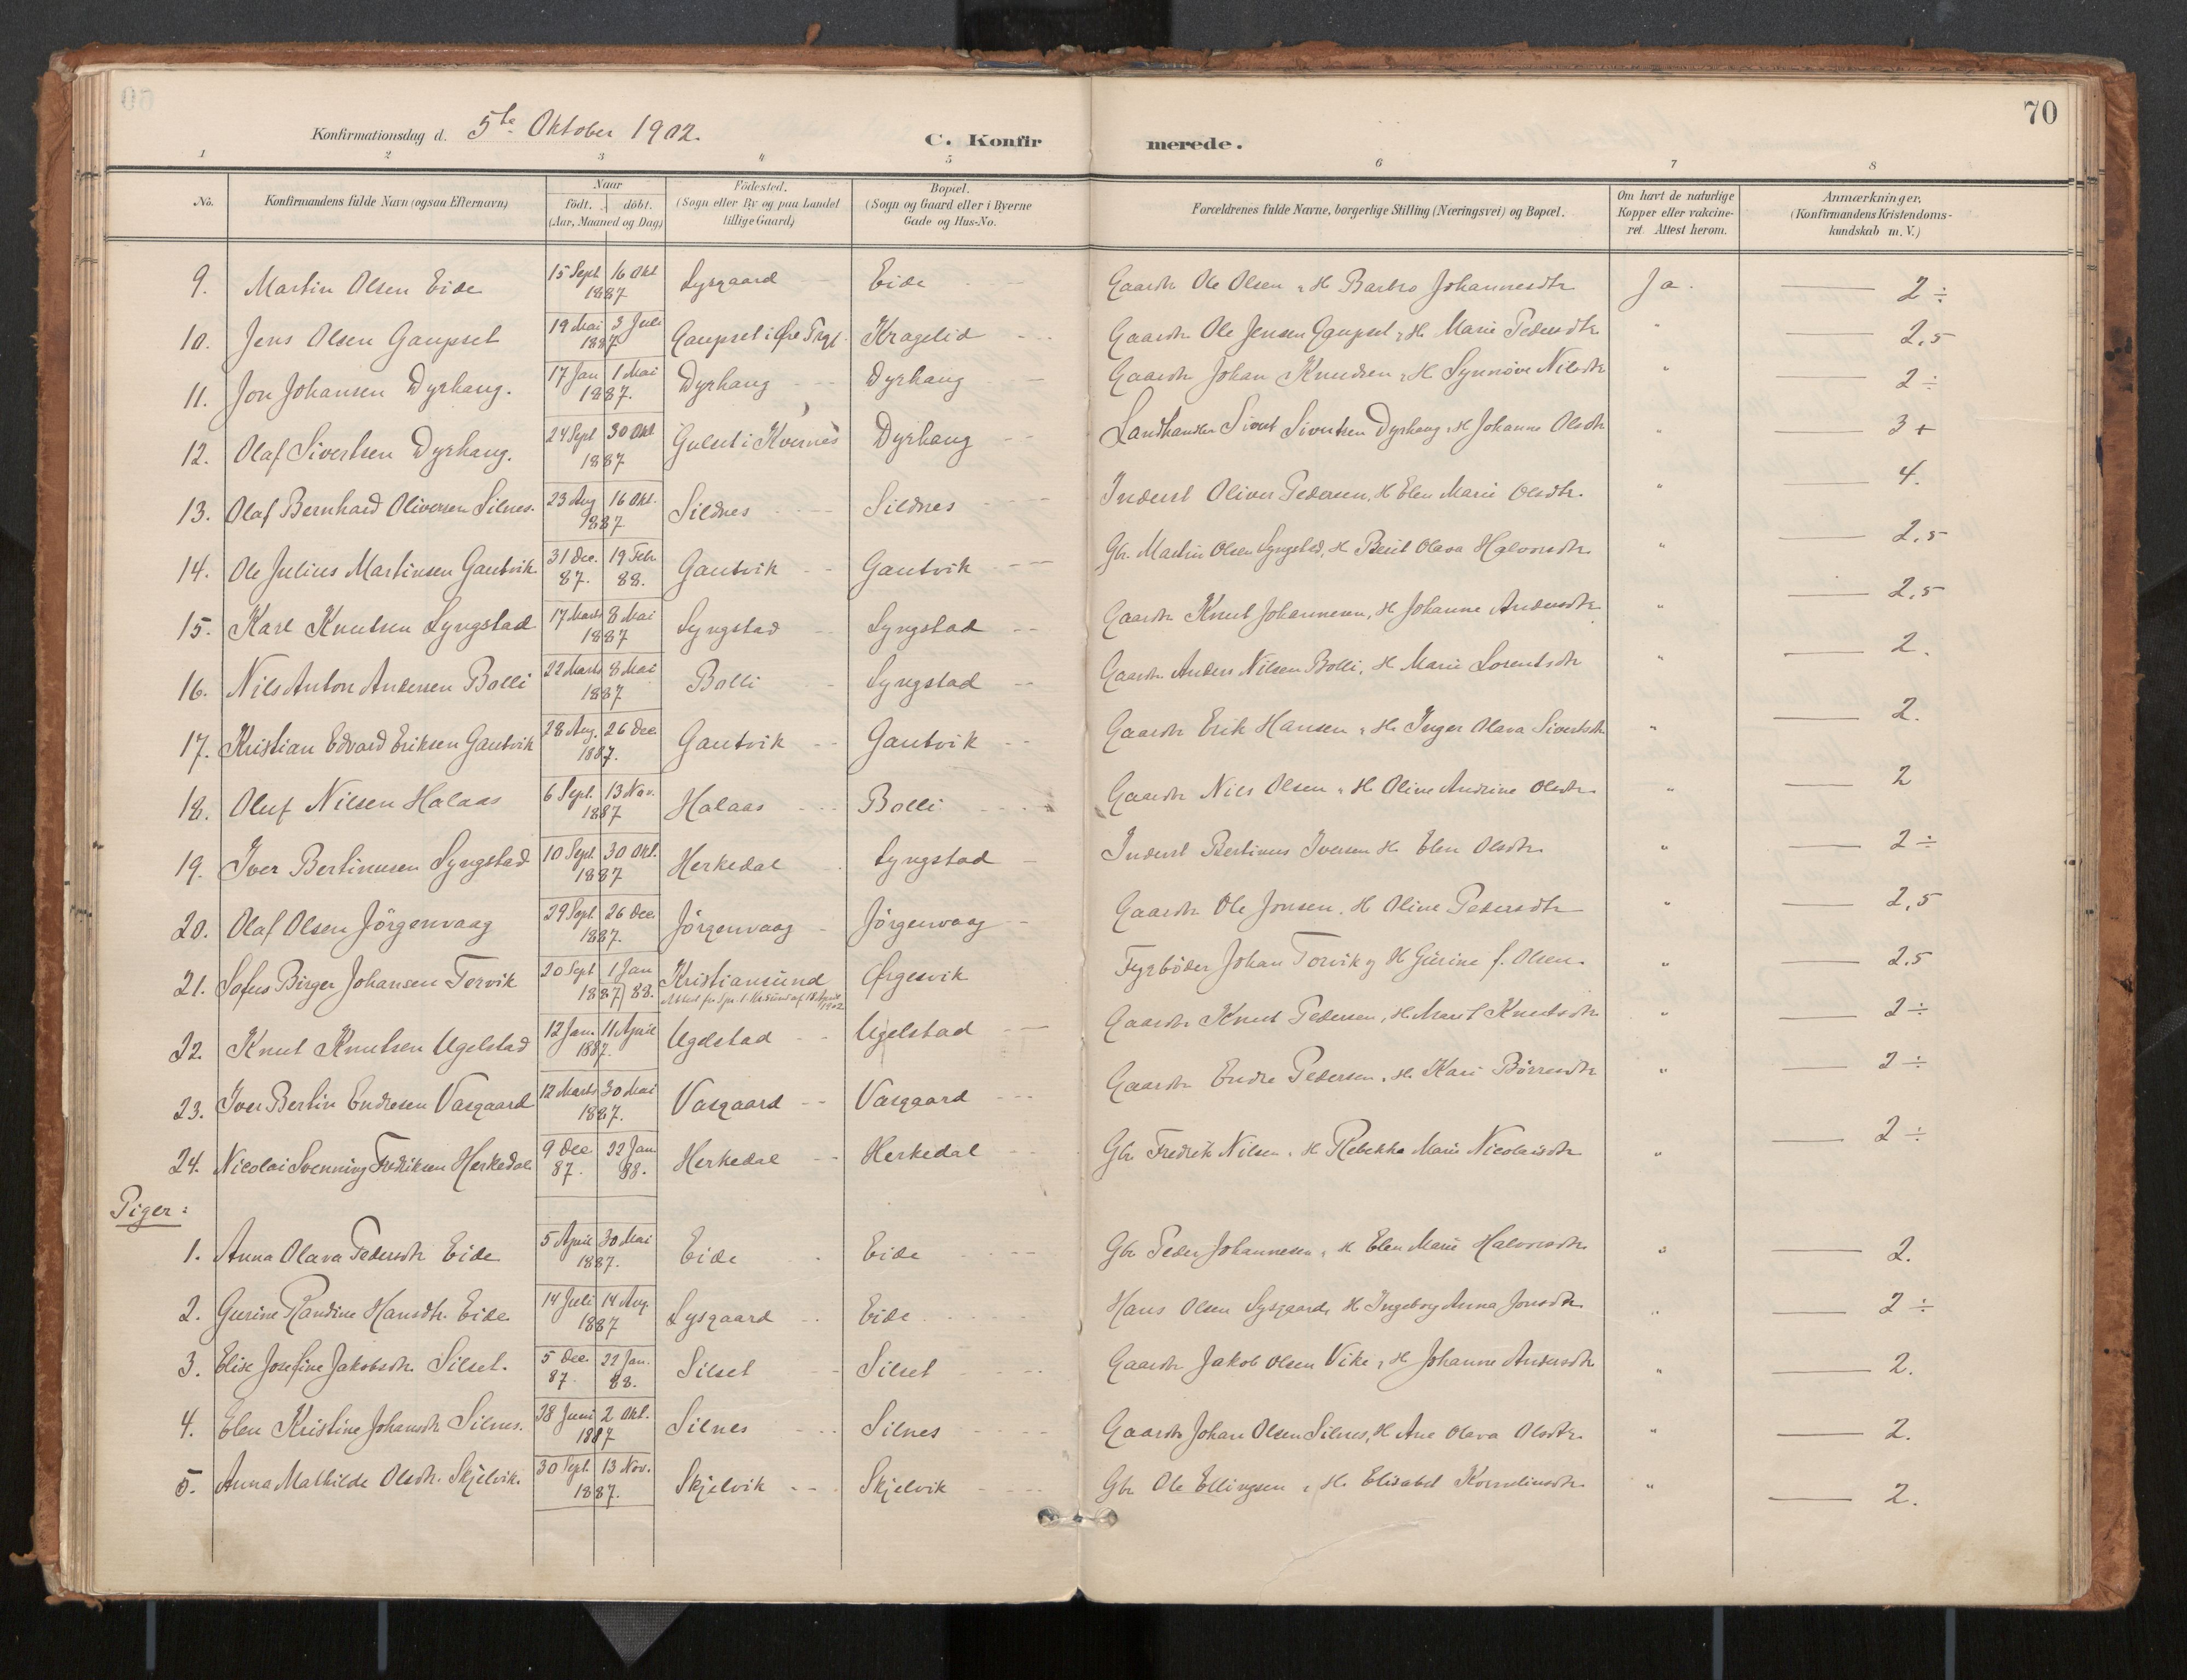 70
Konfirmationsdag d. 5te Oktober 1902.
C. Konfirmerede.
1 2 3 4 5 6 7 8
No. Konfirmandens fulde Navn (ogsaa Efternavn) Naar födt. döbt. (Aar, Maaned og Dag) Födested. (Sogn eller By og paa Landet tillige Gaard) Bopæl. (Sogn og Gaard eller i Byerne Gade og Hus-No. Forældrenes fulde Navne, borgerlige Stilling (Næringsvei) og Bopæl. Om havt de naturlige Kopper eller vakcineret. Attest herom. Anmærkninger. (Konfirmandens Kristendomskundskab m. V.)
9. Martin Olsen Eide 15 Sept. 16 Okt 1887 Lysgaard Eide Gaardbr Ole Olsen & H Barbro Johannesdtr Ja. 2 ÷
10. Jens Olsen Gaupset 19 Mai 3 Juli 1887 Gaupset i Kragelid Gaardbr Ole Jensen Gaupset & H Marie Pedersdtr " 2,5
11. Jon Johansen Dyrhaug. 17 Jan 1 Mai 1887. Dyrhaug Dyrhaug Gaardbr Johan Knudsen & H Synnöve Nilsdtr " 2 ÷
12. Olaf Sivertsen Dyrhaug. 24 Sept 30 Okt 1887 Gulset i Kvernes Dyrhaug Landhandler Sivert Sivertsen Dyrhaug & H Johanne Olsdtr " 3 +
13. Olaf Bernhard Oliversen Silnes. 23 Aug 16 Okt. 1887 Sildnes Sildnes Inderst Oliver Pedersen, H Elen Marie Olsdtr. " 4.
14. Ole Julius Martinsen Gautvik. 31 Dec. 87. 19 Febr 88. Gautvik Gautvik Gbr. Martin Olsen Lyngstad, H Berit Olava Halvorsdtr. " 2,5
15. Karl Knutsen Lyngstad 17 Marts 8 Mai 1887 Lyngstad Lyngstad Gaardbr Knut Johannesen, H Johanne Andersdtr " 2,5
16. Nils Anton Andersen Bolli 22 Marts 8 Mai 1887 Bolli Lyngstad Gaardbr Anders Nilsen Bolli, H Marie Lorentsdtr " 2.
17. Kristian Edvard Eriksen Gautvik 28 Aug. 26 Dec 1887. Gautvik Gautvik Gaardbr Erik Hansen & H. Inger Olava Sivertsdtr " 2.
18. Oluf Nilsen Halaas 6 Sept. 13 Nov. 1887 Halaas Bolli Gaardbr Nils Olsen & H Oline Andrine Olsdtr. " 2
19. Iver Bertinusen Lyngstad 10 Sept. 30 Okt. 1887 Herkedal Lyngstad Inderst Bertinus Iversen H. Elen Olsdtr. " 2 ÷
20. Olaf Olsen Jörgenvaag 29 Sept. 26 Dec. 1887. Jörgenvaag Jörgenvaag Gaardbr Ole Jonsen, H Oline Pedersdtr " 2,5
21. Sofus Birger Johansen Torvik 20 Sept 1 Jan 1887 88. Kristiansund Ørgesvik Fyrböder Johan Torvik og H Gurine f. Olsen. " 2.5
22. Knut Knutsen Ugelstad 12 Jan. 11 April 1887. Ugelstad Ugelstad Gaardbr Knut Pedersen, H. Marit Knutsdtr " 2 ÷
23. Iver Bertin Endresen Vasgaard 12 Marts 30 Mai 1887. Vasgaard Vasgaard Gaardbr Endre Pedersen, H. Kari Börresdtr " 2 ÷
24. Nicolai Svenning Fredriksen Herkedal 9 Dec 87. 22 Jan 88. Herkedal Herkedal Gbr Fredrik Nilsen, H Rebekka Marie Nicolaisdtr " 2 ÷
Piger:
1. Anna Olava Pedersdtr Eide 5 April 30 Mai 1887. Eide Eide Gbr Peder Johannesen & H Elen Marie Halvorsdtr " 2.
2. Gurine Randine Hansdtr. Eide. 14 Juli 14 Aug. 1887 Lysgaard Eide Hans Olsen Lysgaard, H Ingeborg Anna Jonsdtr " 2 ÷
3. Elise Josefine Jakobsdtr. Silset. 5 Dec. 87. 22 Jan. 88. Silset Silset Gaardbr Jakob Olsen Vike & H Johanne Andersdtr " 2.
4. Elen Kristine Johansdtr Silnes. 28 Juni 2 Okt. 1887 Silnes Silnes Gaardbr Johan Olsen Silnes, H Ane Olava Olsdtr. " 2.
5. Anna Mathilde Olsdtr. Skjelvik. 30 Sept. 13 Nov. 1887. Skjelvik Skjelvik Gbr Ole Ellingsen & H. Elisabet Kornelinsdtr. " 2.